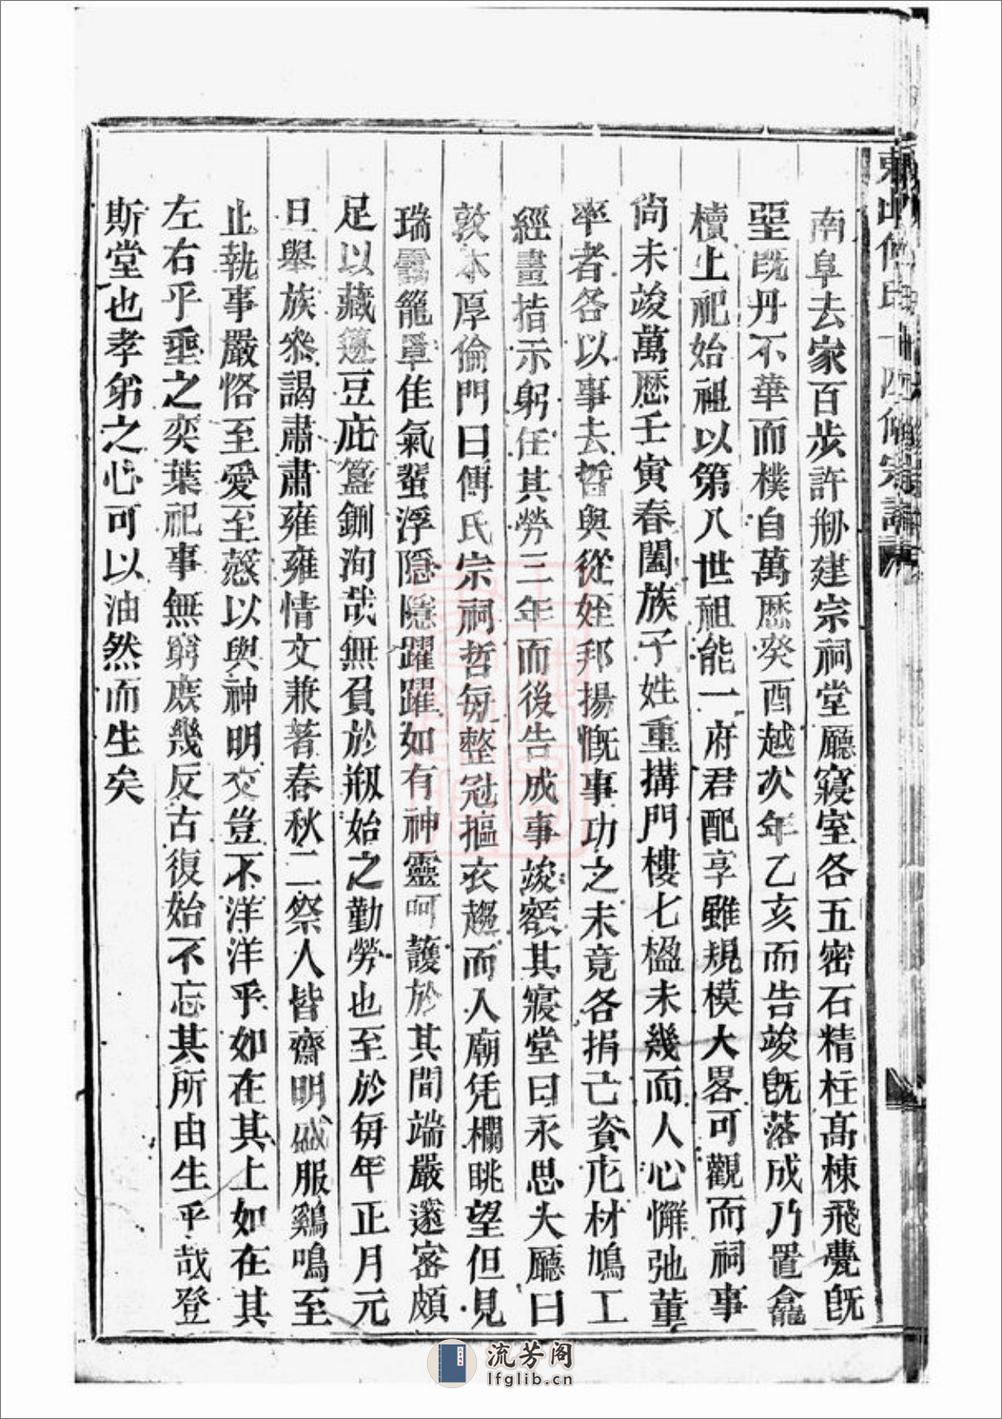 南阜去家百步許刱建宗祠堂廳寢室各五密石精柱高棟飛甍旣
堊旣丹不華而樸自萬曆癸酉越次年乙亥而告竣旣落成乃置龕
櫝上祀始祖以第八世祖能一府君配享雖規模大畧可觀而祠事
尙未竣萬曆壬寅春闔族子姓重搆門樓七楹未幾而人心懈弛董
率者各以事去哲與從姪邦揚慨事功之未竟各捐己資庀材鳩工
經畫指示躬任其勞三年而後告成事竣額其寢堂曰永思大廳曰
敦本厚倫門曰傅氏宗祠哲每整冠摳衣趨而入廟凭欄眺望但見
瑞靄籠罩佳氣蜚浮隱隱躍躍如有神靈呵護於其間端嚴邃密頗
足以藏籩豆庇簋鉶洵哉無負於刱始之勤勞也至於每年正月元
旦舉族叅謁肅肅雍雍情文兼著春秋二祭人皆齋明盛服鷄鳴至
止執事嚴恪至愛至慤以與神明交豈不洋洋乎如在其上如在其
左右乎垂之奕葉祀事無窮庶幾反古復始不忘其所由生乎哉登
斯堂也孝弟之心可以油然而生矣
流芳阁
lfglib.cn